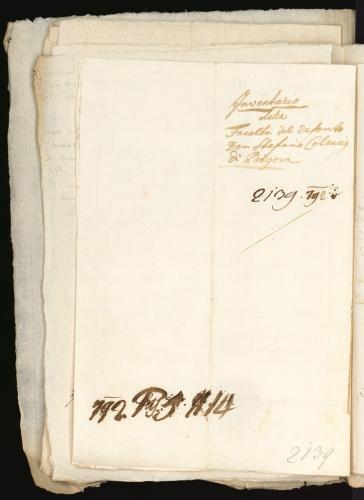 Inventario
della
Facoltà del Defonto
Don Stefano
di
2139. 792
792.
2139